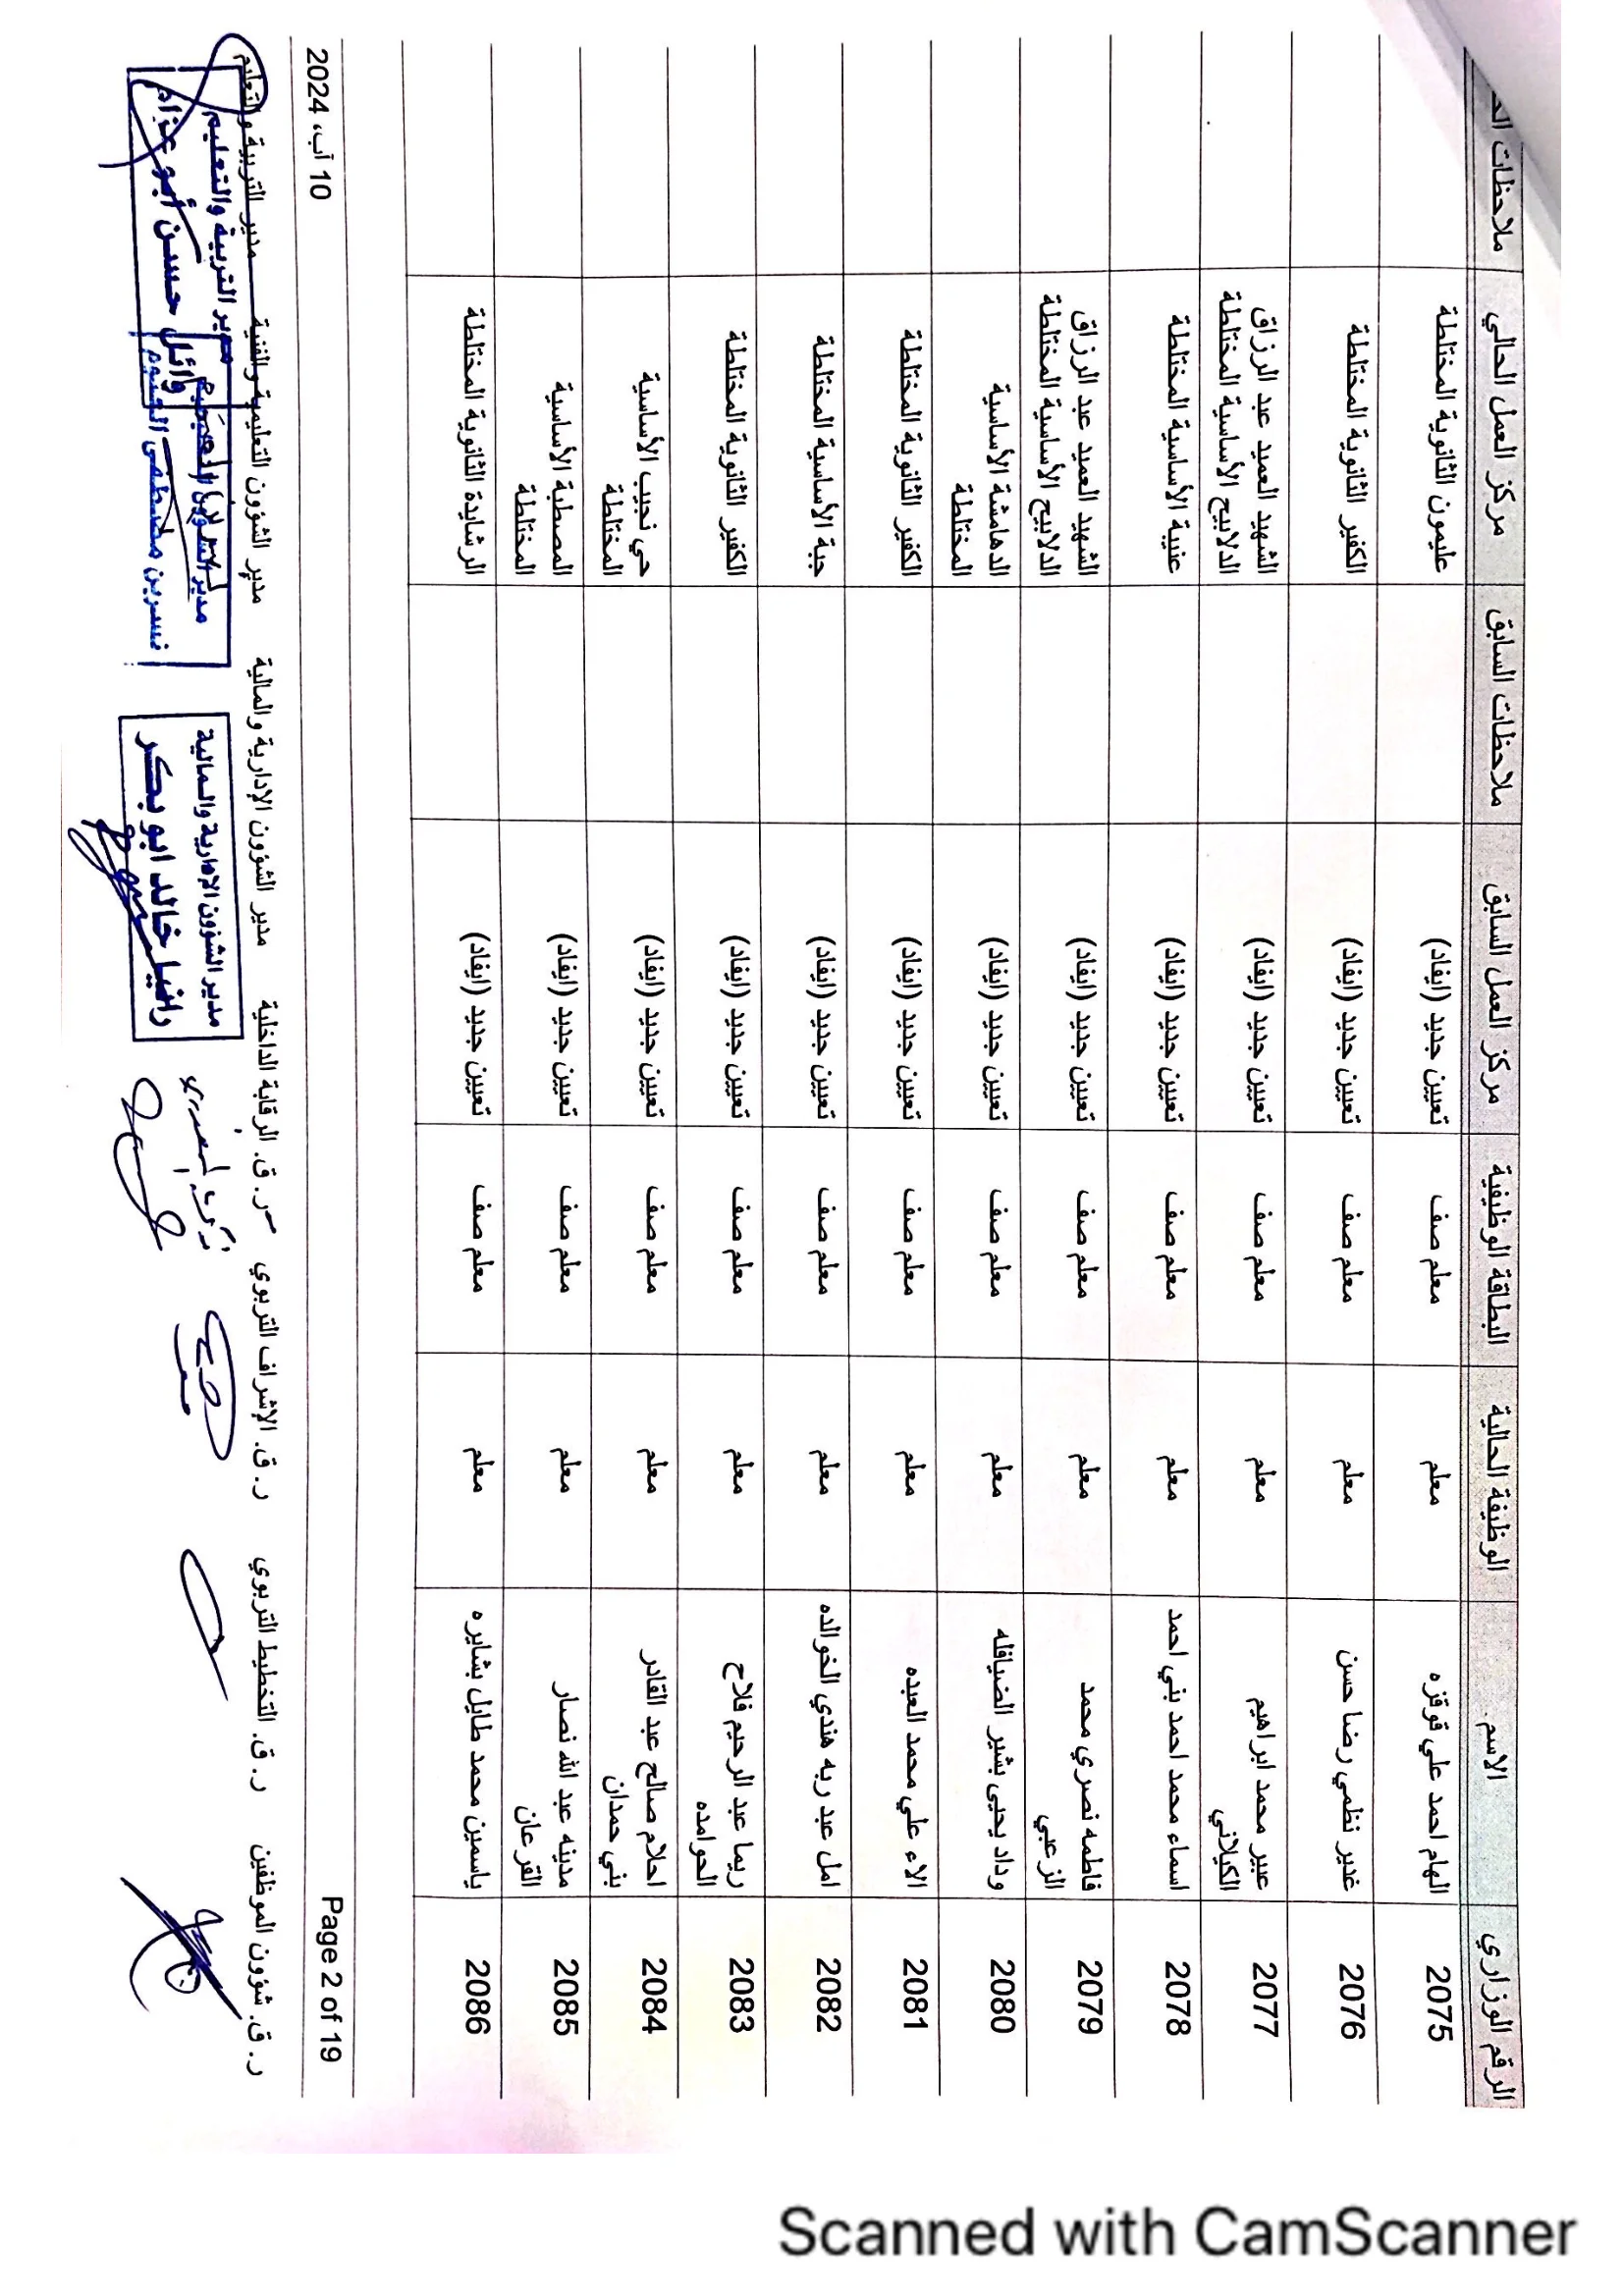 الرقم الوزاري الاسم الوظيفة الحالية البطاقة الوظيفية مركز العمل السابق ملاحظات السابق مركز العمل الحالي ملاحظات
2075 الهام احمد علي قوقزه معلم معلم صف تعيين جديد (ايفاد) عليمون الثانوية المختلطة
2076 غدير نظمي رضا حسن معلم معلم صف تعيين جديد (ايفاد) الكفير الثانوية المختلطة
2077 عبير محمد ابراهيم الكيلاني معلم معلم صف تعيين جديد (ايفاد) الشهيد العميد عبد الرزاق الدلابيح الأساسية المختلطة
2078 اسماء محمد احمد بني احمد معلم معلم صف تعيين جديد (ايفاد) عنيبة الأساسية المختلطة
2079 فاطمه نصري محمد الزعبي معلم معلم صف تعيين جديد (ايفاد) الشهيد العميد عبد الرزاق الدلابيح الأساسية المختلطة
2080 وداد يحيى بشير الضيافله معلم معلم صف تعيين جديد (ايفاد) الدهامشة الأساسية المختلطة
2081 الاء علي محمد العبده معلم معلم صف تعيين جديد (ايفاد) الكفير الثانوية المختلطة
2082 امل عبد ربه هندي الخوالده معلم معلم صف تعيين جديد (ايفاد) جبة الأساسية المختلطة
2083 ريما عبد الرحيم فلاح الحوامده معلم معلم صف تعيين جديد (ايفاد) الكفير الثانوية المختلطة
2084 احلام صالح عبد القادر بني حمدان معلم معلم صف تعيين جديد (ايفاد) حي نجيب الأساسية المختلطة
2085 مدينه عبد الله نصار القرعان معلم معلم صف تعيين جديد (ايفاد) المصطبة الأساسية المختلطة
2086 ياسمين محمد طايل بشايره معلم معلم صف تعيين جديد (ايفاد) الرشايدة الثانوية المختلطة
Page 2 of 19 10 آب، 2024
ر. ق. شؤون الموظفين ر. ق. التخطيط التربوي ر. ق. الإشراف التربوي ر. ق. الرقابة الداخلية مدير الشؤون الإدارية والمالية مدير الشؤون التعليمية والفنية مدير التربية والتعليم
مدير الشؤون الادارية والمالية
رانيا خالد ابو بكر
مدير الشؤون التعليمية
نسرين مصطفى
مدير التربية والتعليم
وائل حسن أبو عزام
Scanned with CamScanner